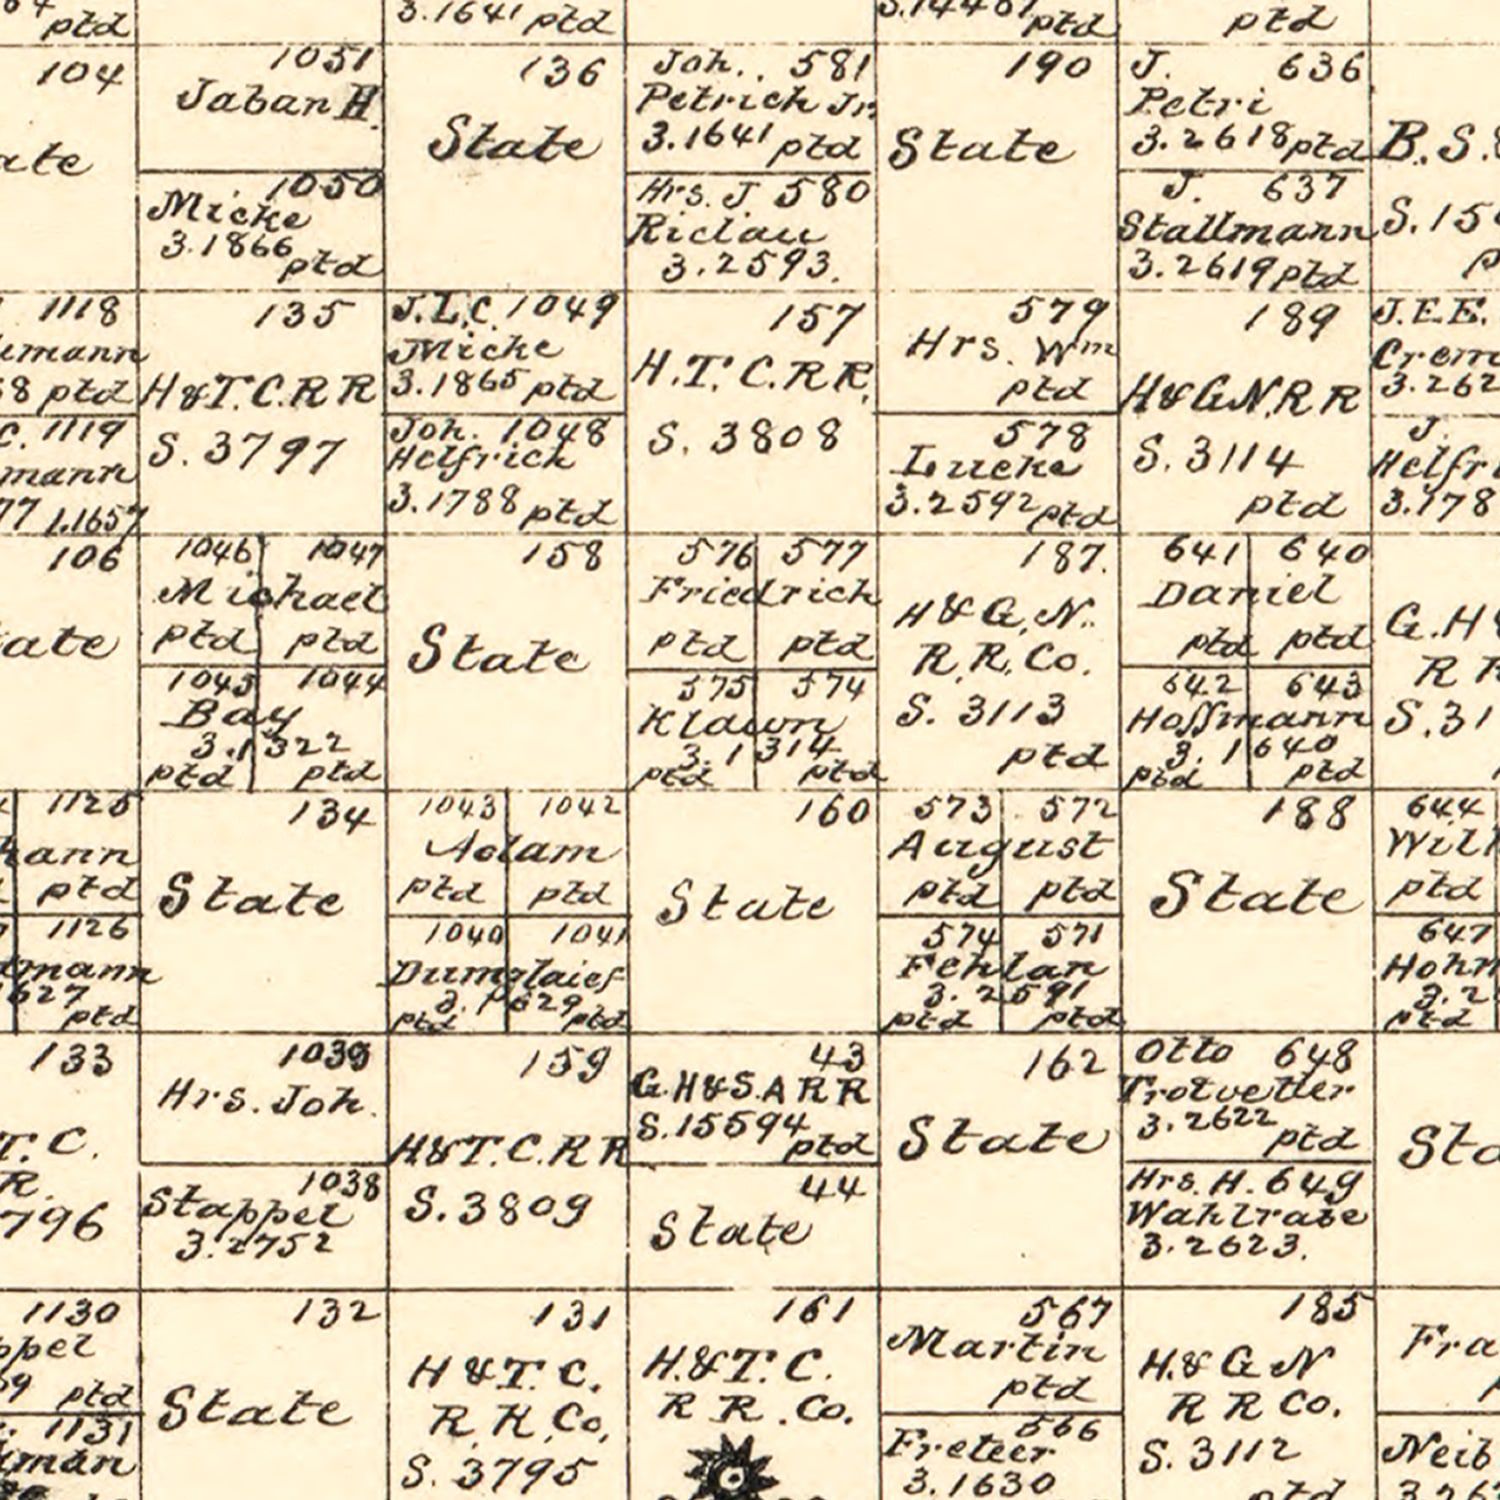 ptd
3.1641 ptd
ptd
ptd
104
1051
Jaban H.
1050
Micke
3.1866
ptd
136
State
Joh. 581
Petrich Jr.
3.1641 ptd
Hrs. J 580
Riclau
3.2593.
190
State
J. 636
Petri
3.2618 ptd
J. 637
Stallmann
3.2619 ptd
B.S.
1118
ptd
1119
1.1657
135
H&T.C.RR
S. 3797
J.L.C. 1049
Micke
3.1865 ptd
Joh. 1048
Helfrich
3.1788 ptd
157
H.T.C.RR.
S. 3808
579
Hrs. Wm
ptd
578
Lucke
3.2592 ptd
189
H&G.N.RR
S. 3114
ptd
J.E.E.
J.
106
1046 1047
Michael
ptd ptd
1045 1044
Bay
3.1322
ptd ptd
158
State
576 577
Friedrich
ptd ptd
575 574
Klawn
3.1314
ptd ptd
187.
H&G.N.
R.R.Co.
S. 3113
ptd
641 640
Daniel
ptd ptd
642 643
Hoffmann
3.1640
ptd ptd
G.H
R
1125
ptd
1126
ptd
134
State
1043 1042
Adam
ptd ptd
1040 1041
ptd ptd
160
State
573 572
August
ptd ptd
574 571
Fehlan
3.2591
ptd ptd
188
State
644
ptd
647
ptd
133
T.C.
R.
1039
Hrs. Joh.
1038
Stappel
3.2752
159
H&T.C.RR
S. 3809
43
G.H&S.A RR
S.15594
ptd
44
State
162
State
Otto 648
Trotvetter
3.2622
ptd
Hrs. H. 649
Wahlrabe
3.2623.
1130
ptd
1131
132
State
131
H&T.C.
R.R.Co,
S. 3795
161
H.&T.C.
R R. Co.
567
Martin
ptd
566
Freteer
3.1630
185
H.&G N
R R Co.
S. 3112
ptd